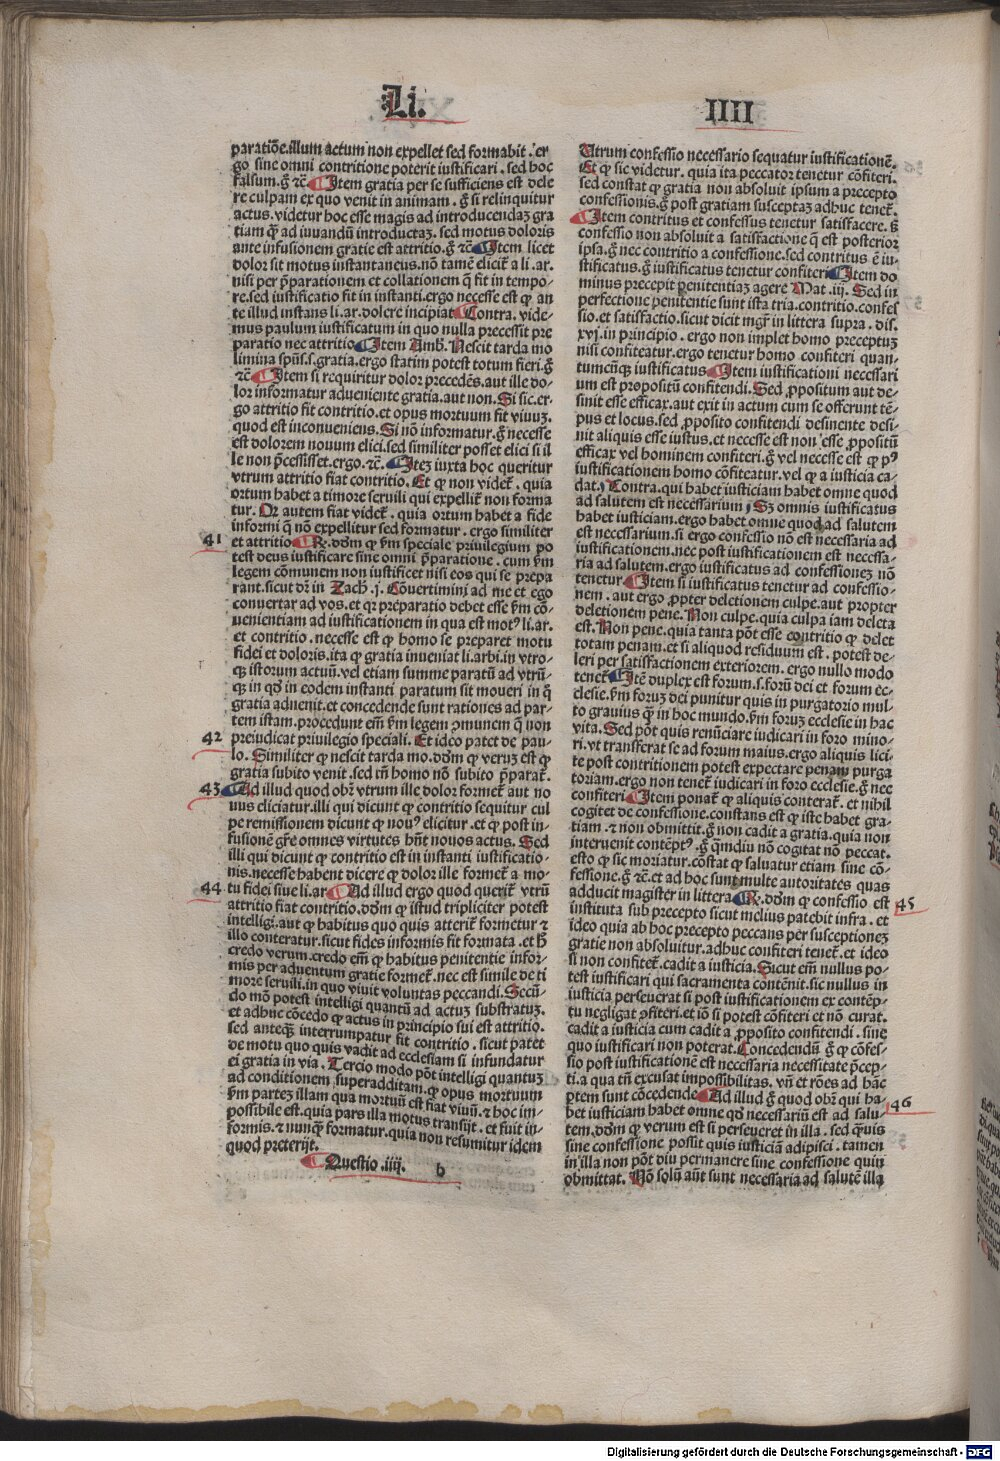 Li.
IIII
paratiōe.illum actum non expellet sed formabit . er
go sine omni contritione poterit iustificari . sed hoc
falsum.ḡ ⁊c̄ ¶ Item gratia per se sufficiens est dele
re culpam ex quo venit in animam . ḡ si relinquitur
actus. videtur hoc esse magis ad introducendaꝫ gra
tiam ꝙ̄ ad iuuandū introductaꝫ. sed motus doloris
ante infusionem gratie est attritio.ḡ ⁊c̄ ¶ Item licet
dolor sit motus instantaneus.nō tamē elicit᷑ a li . ar.
nisi per p̄parationem et collationem q̄ fit in tempo⸗
re.sed iustificatio fit in instanti.ergo necesse est ꝙ an
te illud instans li . ar. dolere incipiat ¶ Contra. vide⸗
mus paulum iustificatum in quo nulla precessit pre
paratio nec attritio ¶ Item Amb. Nescit tarda mo
limina spūs.s.gratia. ergo statim potest totum fieri.ḡ
⁊c̄ ¶ Item si requiritur dolor precedēs.aut ille do⸗
lor informatur adueniente gratia. aut non. Si sic.er⸗
go attritio fit contritio.et opus mortuum fit viuuꝫ.
quod est inconueniens. Si nō informatur.ḡ necesse
est dolorem nouum elici.sed similiter posset elici si il
le non p̄cessisset.ergo.⁊c̄. ¶ Iteꝫ iuxta hoc queritur
vtrum attritio fiat contritio. Et ꝙ non videt᷑. quia
ortum habet a timore seruili qui expellit᷑ non forma
tur. Qꝛ autem fiat videt᷑. quia ortum habet a fide
informi q̄ nō expellitur sed formatur . ergo similiter
41
et attritio ¶ R̄. dōm ꝙ ẜm speciale priuilegium po
test deus iustificare sine omni p̄paratione . cum ẜm
legem cōmunem non iustificet nisi eos qui se prepa
rant.sicut dr̄ in Zach .j. Cōuertimini ad me et ego
conuertar ad vos. et qꝛ preparatio debet esse ẜm cō⸗
uenientiam ad iustificationem in qua est motꝰ li.ar.
et contritio. necesse est ꝙ homo se preparet motu
fidei et doloris.ita ꝙ gratia inueniat li.arbi.in vtro⸗
qꝫ istorum actuū. vel etiam summe paratū ad vtrū⸗
qꝫ in qd̄ in eodem instanti paratum sit moueri in q̄
gratia aduenit.et concedende sunt rationes ad par⸗
tem istam.procedunt em̄ ẜm legem ꝯmunem q̄ non
42
preiudicat priuilegio speciali. Et ideo patet de pau⸗
lo. Similiter ꝙ nescit tarda mo.dōm ꝙ veruꝫ est ꝙ
gratia subito venit .sed tn̄ homo nō subito p̄parat᷑.
43
¶ Ad illud quod obr̄ vtrum ille dolor formet᷑ aut no
uus eliciatur.illi qui dicunt ꝙ contritio sequitur cul
pe remissionem dicunt ꝙ nouꝰ elicitur . et ꝙ post in⸗
fusionē gr̄e omnes virtutes hn̄t nouos actus. Sed
illi qui dicunt ꝙ contritio est in instanti iustificatio⸗
nis.necesse habent dicere ꝙ dolor ille formet᷑ a mo⸗
44
tu fidei siue li.ar ¶ Ad illud ergo quod querit᷑ vtrū
attritio fiat contritio. dōm ꝙ istud tripliciter potest
intelligi.aut ꝙ habitus quo quis atterit᷑ formetur ⁊
illo conteratur.sicut fides informis fit formata .et h̄
credo verum.credo em̄ ꝙ habitus penitentie infor⸗
mis per aduentum gratie formet᷑. nec est simile de ti
more seruili.in quo viuit voluntas peccandi. Secū⸗
do mō potest intelligi quantū ad actuꝫ substratuꝫ.
et adhuc cōcedo ꝙ actus in principio sui est attritio.
sed anteqꝫ interrumpatur fit contritio . sicut patet
de motu quo quis vadit ad ecclesiam si infundatur
ei gratia in via . Tercio modo pōt intelligi quantuꝫ
ad conditionem superadditam. ꝙ opus mortuum
ẜm partez illam qua mortuū est fiat viuū. ⁊ hoc im⸗
possibile est.quia pars illa motus transijt . et fuit in⸗
formis.⁊ nunqꝫ formatur.quia non resumitur idem
quod preterijt.
¶ Questio .iiij. b
Utrum confessio necessario sequatur iustificationē.
Et ꝙ sic videtur. quia ita peccator tenetur cōfiteri.
sed constat ꝙ gratia non absoluit ipsum a precepto
confessionis.ḡ post gratiam susceptaꝫ adhuc tenet᷑.
¶ Item contritus et confessus tenetur satisfacere. ß
confessio non absoluit a satisfactione q̄ est posterior
ipsa.ḡ nec contritio a confessione.sed contritus ē iu⸗
stificatus.ḡ iustificatus tenetur confiteri ¶ Item do
minus precepit penitentiaꝫ agere Mat .iij. Sed in
perfectione penitentie sunt ista tria.contritio.confes
sio.et satisfactio.sicut dicit mgr̄ in littera supra . dis.
xvj.in principio . ergo non implet homo preceptuꝫ
nisi confiteatur.ergo tenetur homo confiteri quan⸗
tumcūqꝫ iustificatus ¶ Item iustificationi necessari
um est propositū confitendi. Sed ꝓpositum aut de⸗
sinit esse efficax.aut exit in actum cum se offerunt tē⸗
pus et locus.sed ꝓposito confitendi desinente desi⸗
nit aliquis esse iustus.et necesse est non esse ꝓpositū
efficax vel hominem confiteri.ḡ vel necesse est ꝙ pꝰ
iustificationem homo cōfiteatur.vel ꝙ a iusticia ca⸗
dat. Contra.qui habet iusticiam habet omne quod
ad salutem est necessarium. Sꝫ omnis iustificatus
habet iusticiam.ergo habet omne quod ad salutem
est necessarium.si ergo confessio nō est necessaria ad
iustificationem.nec post iustificationem est necessa⸗
ria ad salutem.ergo iustificatus ad confessioneꝫ nō
tenetur ¶ Item si iustificatus tenetur ad confessio⸗
nem . aut ergo ꝓpter deletionem culpe.aut propter
deletionem pene. Non culpe.quia culpa iam deleta
est. Non pene.quia tanta pōt esse contritio ꝙ delet
totam penam.et si aliquod residuum est . potest de⸗
leri per satisfactionem exteriorem. ergo nullo modo
tenet᷑ ¶ Itē duplex est forum.s.forū dei et forum ec⸗
clesie.ẜm foruꝫ dei punitur quis in purgatorio mul⸗
to grauius qꝫ in hoc mundo.ẜm foruꝫ ecclesie in hac
vita. Sed pōt quis renūciare iudicari in foro mino⸗
ri.vt transferat se ad forum maius.ergo aliquis lici⸗
te post contritionem potest expectare penam purga
toriam.ergo non tenet᷑ iudicari in foro ecclesie.ḡ nec
confiteri ¶ Item ponat᷑ ꝙ aliquis conterat᷑. et nihil
cogitet de confessione.constans est ꝙ iste habet gra⸗
tiam . ⁊ non obmittit.ḡ non cadit a gratia.quia non
interuenit contēptꝰ. ḡ qꝫdiu nō cogitat nō peccat.
esto ꝙ sic moriatur. cōstat ꝙ saluatur etiam sine cō⸗
fessione.ḡ ⁊c̄.et ad hoc sunt multe autoritates quas
45
adducit magister in littera ¶ R̄. dōm ꝙ confessio est
instituta sub precepto sicut melius patebit infra . et
ideo quia ab hoc precepto peccans per susceptioneꝫ
gratie non absoluitur.adhuc confiteri tenet᷑. et ideo
si non confitet᷑. cadit a iusticia. Sicut em̄ nullus po⸗
test iustificari qui sacramenta contēnit.sic nullus in
iusticia perseuerat si post iustificationem ex contēp⸗
tu negligat ꝯfiteri.et iō si potest cōfiteri et nō curat.
cadit a iusticia cum cadit a ꝓposito confitendi . sine
quo iustificari non poterat. Concedendū ḡ ꝙ cōfes⸗
sio post iustificationē est necessaria necessitate p̄cep⸗
ti.a qua tn̄ excusat impossibilitas. vn̄ et rōes ad hāc
46
ptem sunt cōcedende ¶ Ad illud ḡ quod obr̄ qui ha⸗
bet iusticiam habet omne qd̄ necessariū est ad salu⸗
tem.dōm ꝙ verum est si perseueret in illa . sed qꝫuis
sine confessione possit quis iusticiā adipisci . tamen
in illa non pōt diu permanere sine confessione quin
obmittat. Nō solū aūt sunt necessaria ad salutē illa
Digitalisierung gefördert durch die Deutsche Forschungsgemeinschaft - DFG